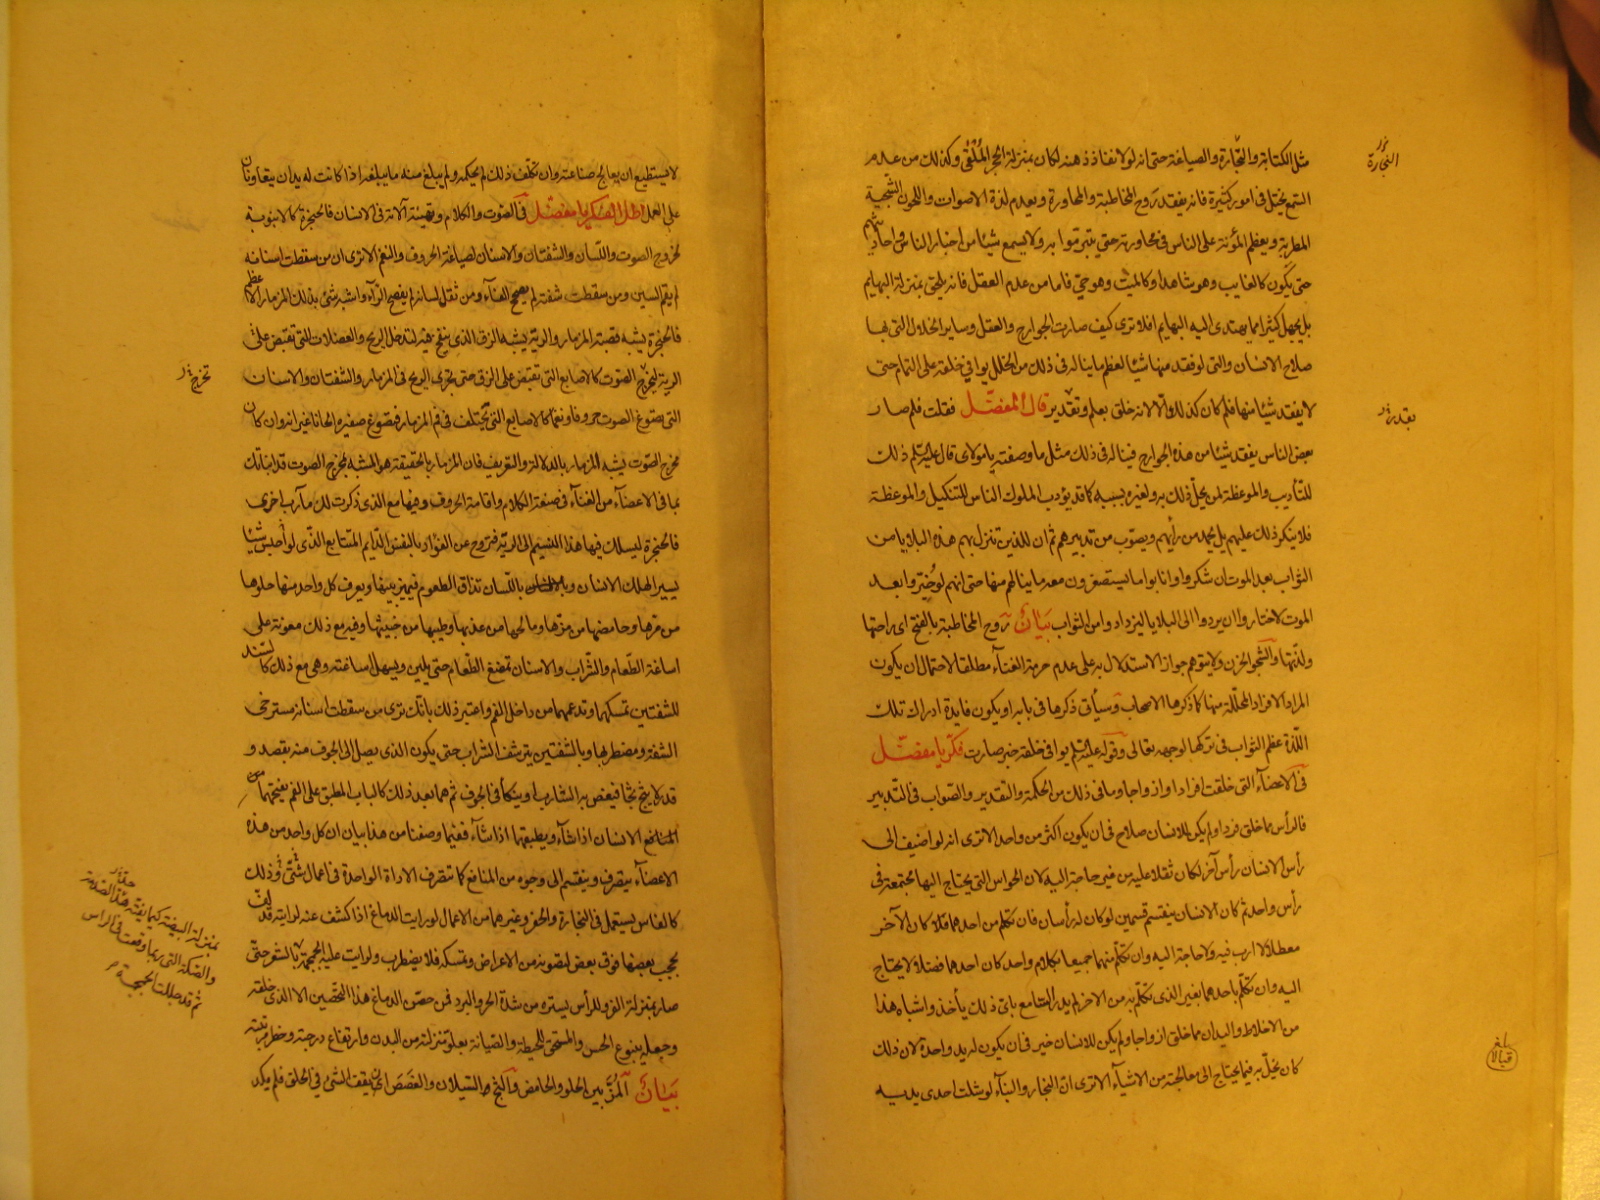 مثل الكتابة والتجارة والصياغة حتى انه لولا نفاذ ذهنه لكان بمنزلة الحجر الملقى وكذلك من عدم
السمع يختل في امور كثيرة فانه يفقد روح المخاطبة والمحاورة ويعدم لذة الاصوات واللحون الشجية
المطربة ويعظم المؤنة على الناس في محاورته حتى يتبرموا به ولا يسمع شيئا من اخبار الناس واحاديثهم
حتى يكون كالغايب وهو شاهد او كالميت وهو حي فاما من عدم العقل فانه يلحق بمنزلة البهايم
بل يجهل كثيرا مما يهتدى اليه البهايم افلا ترى كيف صارت الجوارح والعقل وساير الخلال التى بها
صلاح الانسان والتى لو فقد منها شيئا لعظم ما يناله في ذلك من الخلل يوافي خلقه على التمام حتى
لا يفقد شيئا منها فلم كان كذلك الا لانه خلق بعلم وتقدير قال المفضل فقلت فلم صار
بعض الناس يفقد شيئا من هذه الجوارح فيناله في ذلك مثل ما وصفته يا مولاى قال عليه السلم ذلك
للتأديب والموعظة لمن يحل ذلك به ولغيره بسببه كما قد يؤدب الملوك الناس للتنكيل والموعظة
فلا ينكر ذلك عليهم بل يحمد من رأيهم ويصوب من تدبيرهم ثم ان للذين تنزل بهم هذه البلايا من
الثواب بعد الموت ان شكروا وانابوا ما يستصغرون معه ما ينالهم منها حتى انهم لو خيروا بعد
الموت لاختاروا ان يردوا الى البلايا ليزدادوا من الثواب بيان روح المخاطبة بالفتح اى راحتها
ولذتها والشجو الحزن ولا يتوهم جواز الاستدلال به على عدم حرمة الغناء مطلقا لاحتمال ان يكون
المراد الافراد المحللة منها كما ذكرها الاصحاب وسيأتى ذكرها في بابه او يكون فايدة ادراك تلك
اللذة عظم الثواب في تركها لوجهه تعالى وقوله عليه السلم يوافي خلقه خبر صارت فكر يا مفضل
في الاعضاء التى خلقت افرادا وازواجا وما في ذلك من الحكمة والتقدير والصواب في التدبير
فالرأس مما خلق فردا ولم يكن للانسان صلاح في ان يكون اكثر من واحد الا ترى انه لو اضيف الى
رأس الانسان رأس آخر لكان ثقلا عليه من غير حاجة اليه لان الحواس التى يحتاج اليها مجتمعة في
رأس واحد ثم كان الانسان ينقسم قسمين لو كان له رأسان فان تكلم من احدهما كان الآخر
معطلا لا ارب فيه ولا حاجة اليه وان تكلم منهما جميعا بكلام واحد كان احدهما فضلا لا يحتاج
اليه وان تكلم باحدهما بغير الذى تكلم به من الاخر لم يدر السامع باى ذلك يأخذ واشباه هذا
من الاخلاط واليدان مما خلق ازواجا ولم يكن للانسان خير في ان يكون له يد واحدة لان ذلك
كان يخل به فيما يحتاج الى معالجته من الاشياء الا ترى ان النجار والبناء لو شلت احدى يديه
النجارة
بقدر
بلغ
قبالا
لا يستطيع ان يعالج صناعته وان تكلف ذلك لم يحكمه ولم يبلغ منه ما يبلغه اذا كانت له يدان يتعاونان
على العمل اطل الفكر يا مفضل في الصوت والكلام وتهيئة آلاته في الانسان فالحنجرة كالانبوبة
لخروج الصوت واللسان والشفتان والاسنان لصياغة الحروف والنغم الا ترى ان من سقطت اسنانه
لم يقم السين ومن سقطت شفته لم يصح الفاء ومن ثقل لسانه لم يفصح الراء واشبه شئ بذلك المزمار الاعظم
فالحنجرة يشبه قصبة المزمار والرية يشبه الزق الذى ينفخ فيه لتدخل الريح والعضلات التى تقبض على
الرية ليخرج الصوت كالاصابع التى تقبض على الزق حتى يجرى الريح في المزمار والشفتان والاسنان
التى تصوغ الصوت حروفا ونغما كالاصابع التى يختلف في فم المزمار فيصوغ صفيره الحانا غير انه وان كان
مخرج الصوت يشبه المزمار بالدلالة والتعريف فان المزمار بالحقيقة هو المشبه بمخرج الصوت قد انبأتك
بما في الاعضاء من الغناء في صنعة الكلام واقامة الحروف وفيها مع الذى ذكرت لك مآرب اخرى
فالحنجرة ليسلك فيها هذا النسيم الى الرية فتروح عن الفؤاد بالنفس الدايم المتتابع الذى لو احتبس شيئا
يسيرا لهلك الانسان وباللسان تذاق الطعوم فيميز بينها ويعرف كل واحد منها حلوها
من مرها وحامضها من مزها ومالحها من عذبها وطيبها من خبيثها وفيه مع ذلك معونة على
اساغة الطعام والشراب والاسنان تمضغ الطعام حتى يلين ويسهل اساغته وهى مع ذلك كالسند
للشفتين تمسكهما وتدعمهما من داخل الفم واعتبر ذلك بانك ترى من سقطت اسنانه مسترخى
الشفة ومضطربها وبالشفتين يترشف الشراب حتى يكون الذى يصل الى الجوف منه بقصد و
قدر لا يثج ثجا فيغص به الشارب او ينكأ في الجوف ثم هما بعد ذلك كالباب المطبق على الفم يفتحهما
الانسان اذا شاء ويطبقهما اذا شاء ففيما وصفنا من هذا بيان ان كل واحد من هذه
الاعضاء يتصرف وينقسم الى وجوه من المنافع كما تتصرف الاداة الواحدة في اعمال شتى وذلك
كالفاس يستعمل في النجارة والحفر وغيرهما من الاعمال لو رايت الدماغ اذا كشف عنه لرايته قد لف
بحجب بعضها فوق بعض لتصونه من الاعراض وتمسكه فلا يضطرب ولرايت عليه الجمجمة بالشعر حتى
صار بمنزلة الفرو للرأس يستره من شدة الحر والبرد فمن حصن الدماغ هذا التحصين الا الذى خلقه
وجعله ينبوع الحس والمستحق للحيطة والصيانة بعلو منزلته من البدن وارتفاع درجته وخطر مرتبته
بيان المز بين الحلو والحامض والثج السيلان والغصص ان يقف الشئ في الحلق فلم يكد
تخرج
بمنزلة البيضة كيما يفته هد الصدمة
والصكة التى ربما وقعت في الراس
ثم قد جللت الجمجمة